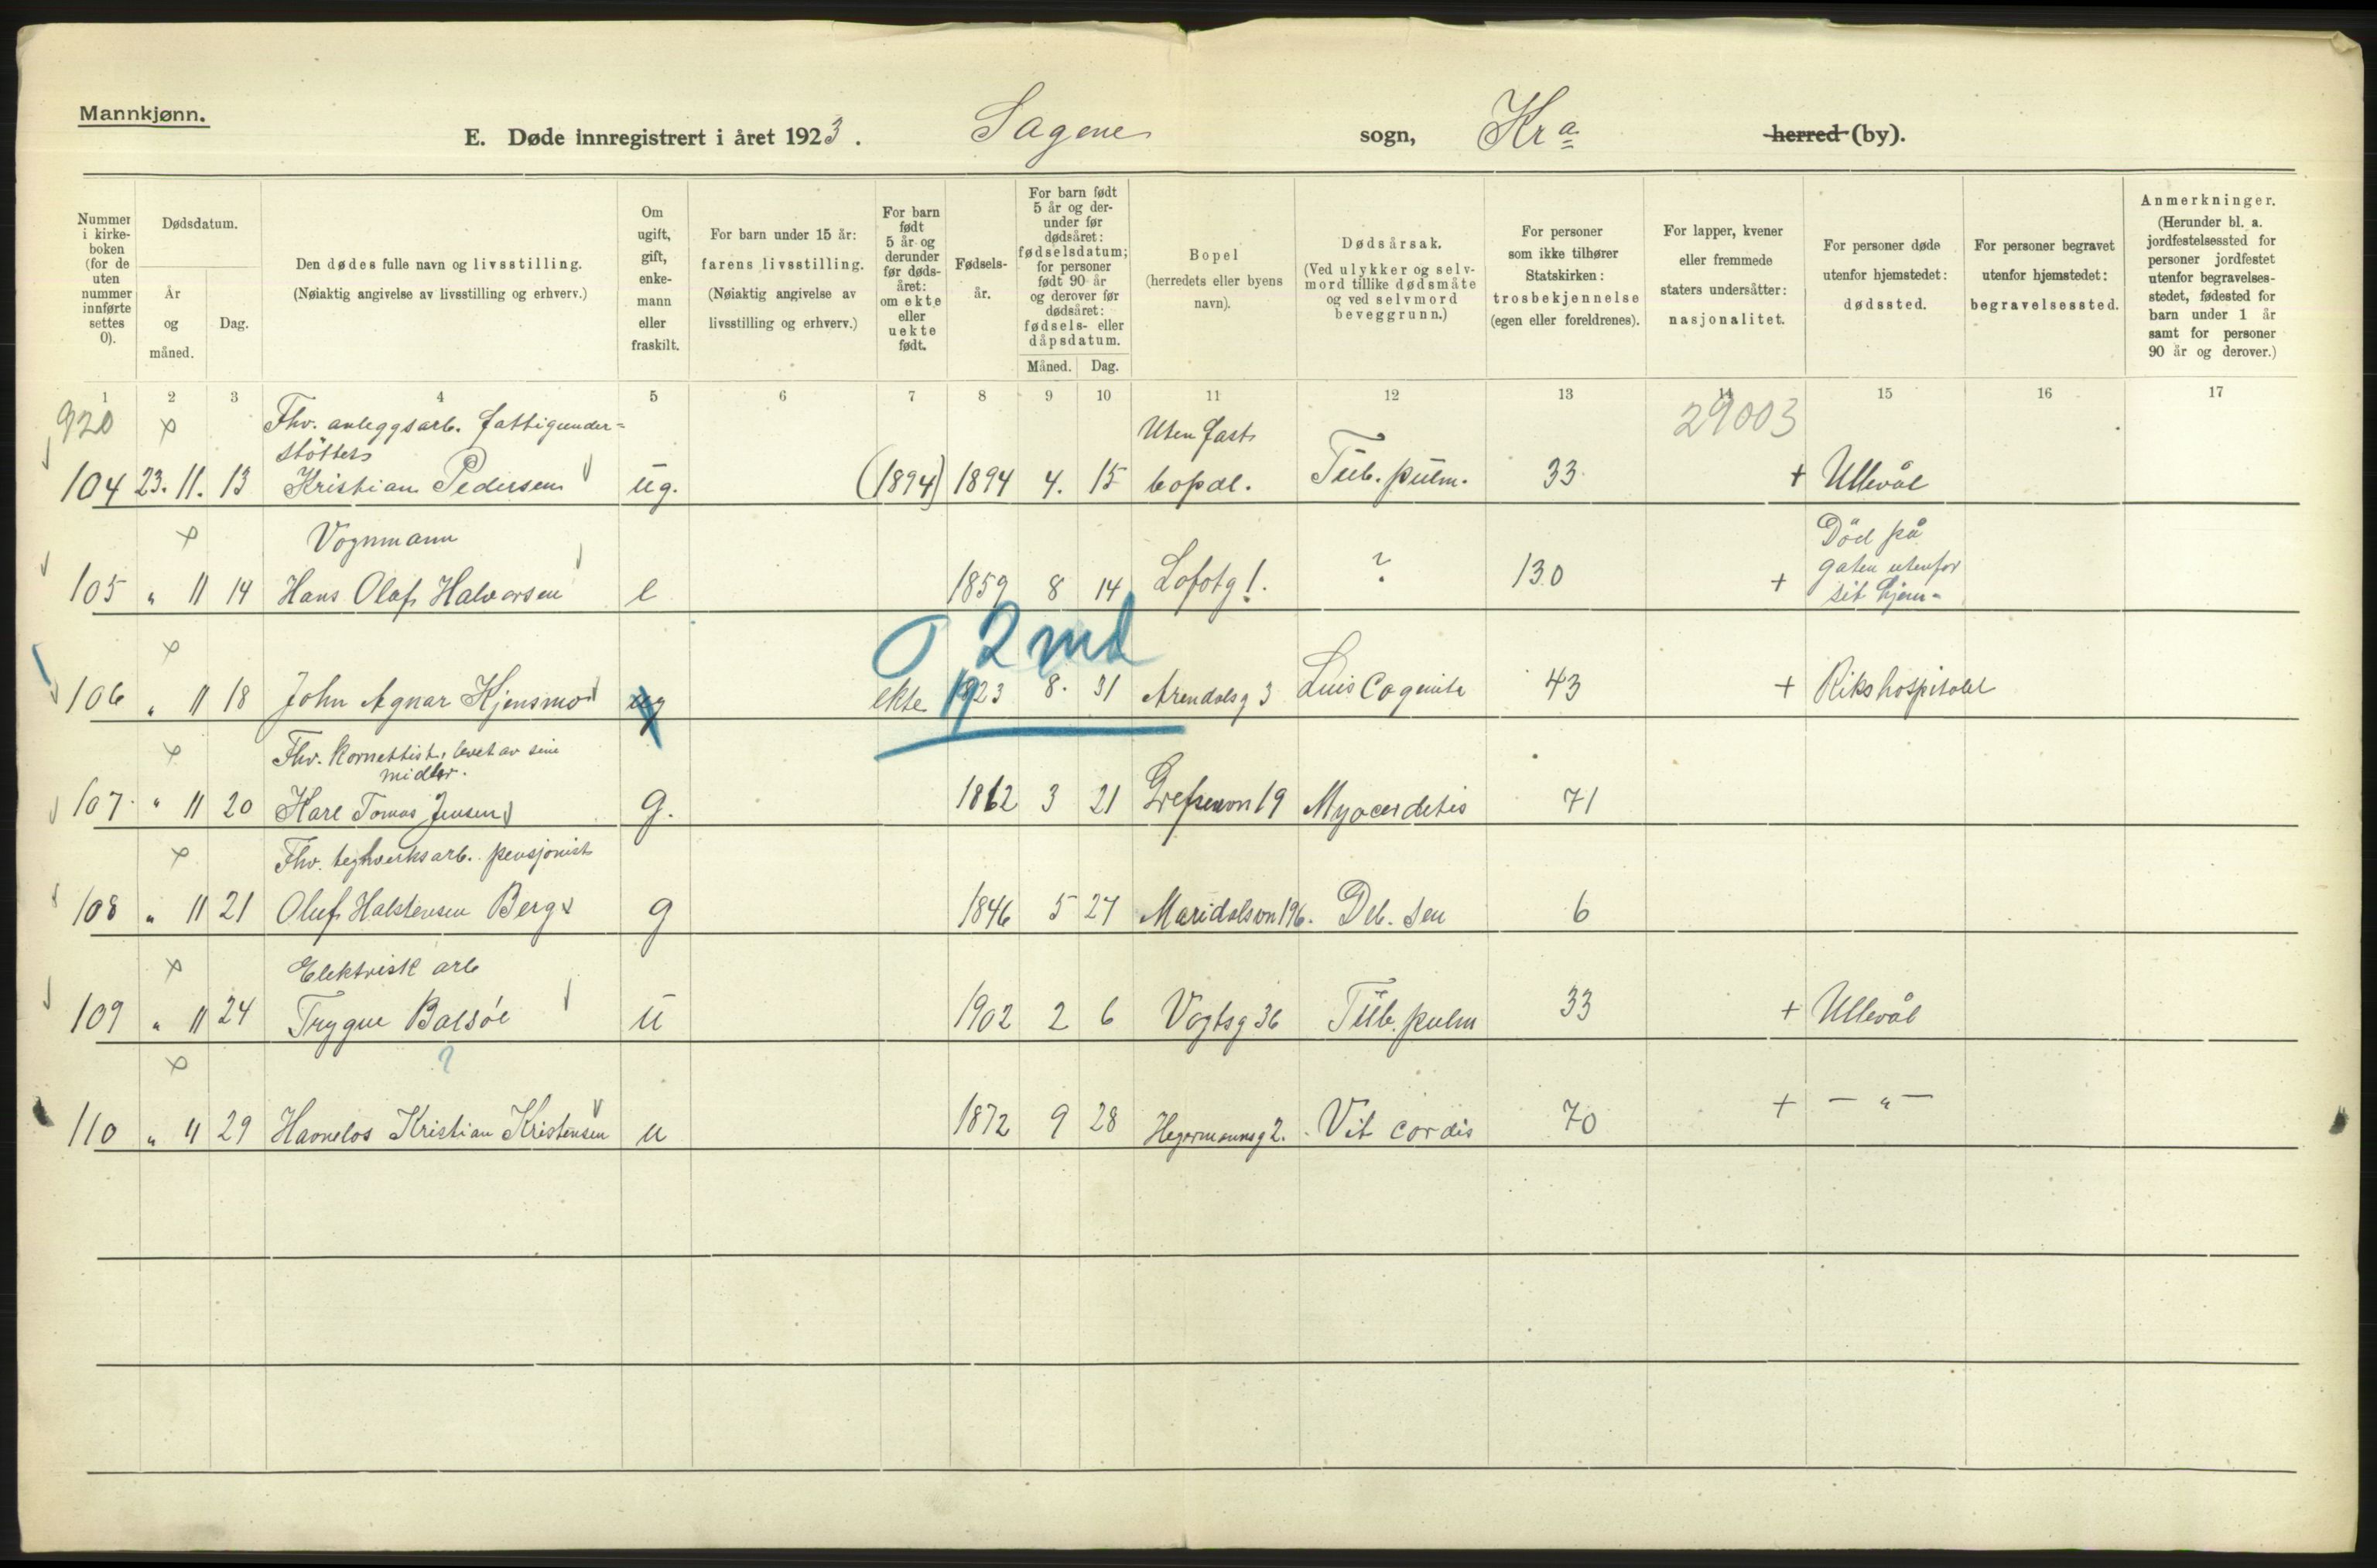 Mannkjønn.
E. Døde innregistrert i året 1923. Sagene sogn, Kra herred (by).
Nummer i kirke-boken (for de uten nummer innførte settes 0).
Dødsdatum.
År og måned.
Dag.
Den dødes fulle navn og livsstilling.
(Nøiaktig angivelse av livsstilling og erhverv.)
Om ugift, gift, enke-mann eller fraskilt.
For barn under 15 år: farens livsstilling.
(Nøiaktig angivelse av livsstilling og erhverv.)
For barn født 5 år og derunder før døds-året: om ekte eller uekte født.
Fødsels-år.
For barn født 5 år og der-under før dødsåret: fødselsdatum; for personer født 90 år og derover før dødsåret: fødsels- eller dåpsdatum.
Måned. Dag.
Bopel
(herredets eller byens navn).
Dødsårsak.
(Ved ulykker og selv-mord tillike dødsmåte og ved selvmord beveggrunn.)
For personer som ikke tilhører Statskirken: trosbekjennelse (egen eller foreldrenes).
For lapper, kvener eller fremmede staters undersåtter: nasjonalitet.
For personer døde utenfor hjemstedet: dødssted.
For personer begravet utenfor hjemstedet: begravelsessted.
Anmerkninger.
(Herunder bl. a. jordfestelsessted for personer jordfestet utenfor begravelses-stedet, fødested for barn under 1 år samt for personer 90 år og derover.)
1 2 3 4 5 6 7 8 9 10 11 12 13 14 15 16 17
920 x Fhv. anleggsarb. fattigunder- Uten fast 29003
støttets
104 23. 11. 13 Kristian Pedersen ug. (1894) 1894 4. 15 bopæl. Tub. pulm. 33 + Ullevål
x Vognmann Død på
105 " 11 14 Hans Olaf Halvorsen e 1859 8 14 Lofotg 1. ? 130 + gaten utenfor
sit hjem-
x 0 2 md
106 " 11 18 John Agnar Kjensmo ug ekte 1923 8. 31 Arendalsg 3 Luis Cogenita 43 + Rikshospitalet
x Fhv. Kornettist, levet av sine
midler.
107 " 11 20 Karl Tomas Jensen g. 1862 3 21 Grefsenvn 19 Myocarditis 71
x Fhv. teglverksarb. pensjonist
108 " 11 21 Oluf Halstensen Berg g 1846 5 27 Maridalsvn 196. Deb. sen 6
x Elektrisk arb
109 " 11 24 Trygve Balsøe u 1902 2 6 Vogtsg 36 Tub. pulm 33 + Ullevål
x ?
110 " 11 29 Kristian Kristensen u 1872 9 28 Hegermannsg 2. Vit cordis 70 + — " —